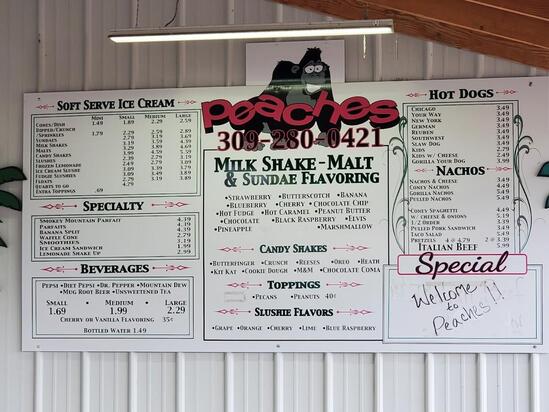 SOFT SERVE ICE CREAM
MINI SMALL MEDIUM LARGE
CONES/DISH 1.49 1.89 2.29 2.59
DIPPED/CRUNCH
/SPRINKLES 1.79 2.29 2.59 2.89
SUNDAES
MILK SHAKES
MALTS
CANDY SHAKES
SLUSHES
FROZEN LEMONADE
ICE CREAM SLUSHE
FUDGIE SLUSHIES
FLOATS
QUARTS TO GO 4.79
EXTRA TOPPINGS .69
SPECIALTY
SMOKEY MOUNTAIN PARFAIT 4.39
PARFAITS 4.39
BANANA SPLIT 4.29
WAFFLE CONE 2.79
SMOOTHIES 3.19
ICE CREAM SANDWICH 1.99
LEMONADE SHAKE UP 2.99
BEVERAGES
PEPSI •DIET PEPSI •DR. PEPPER •MOUNTAIN DEW
•MUG ROOT BEER •UNSWEETENED TEA
SMALL • MEDIUM • LARGE
1.69 1.99 2.29
CHERRY OR VANILLA FLAVORING 35¢
BOTTLED WATER 1.49
Peaches
309-280-0421
MILK SHAKE-MALT
& SUNDAE FLAVORING
•STRAWBERRY •BUTTERSCOTCH •BANANA
•BLUEBERRY •CHERRY •CHOCOLATE CHIP
•HOT FUDGE •HOT CARAMEL •PEANUT BUTTER
•CHOCOLATE •BLACK RASPBERRY •ELVIS
•PINEAPPLE •MARSHMALLOW
CANDY SHAKES
BUTTERFINGER •CRUNCH •REESES •OREO •HEATH
•KIT KAT •COOKIE DOUGH •M&M •CHOCOLATE COMA
TOPPINGS
•PECANS •PEANUTS 40¢
SLUSHIE FLAVORS
•GRAPE •ORANGE •CHERRY •LIME •BLUE RASPBERRY
HOT DOGS
CHICAGO 3.49
YOUR WAY 3.49
NEW YORK 3.49
GERMAN 3.49
REUBEN 3.49
SOUTHWEST 3.49
SLAW DOG 3.49
KIDS 2.29
KIDS W/ CHEESE 2.49
GORILLA YOUR DOG 3.99
NACHOS
NACHOS & CHEESE 3.49
CONEY NACHOS 4.49
GORILLA NACHOS 5.49
PULLED NACHOS 5.49
•CONEY SPAGHETTI 4.49
W/ CHEESE & ONIONS 5.49
1/2 ORDER 3.39
PULLED PORK SANDWICH 3.49
TACO SALAD 5.49
PRETZELS 4 @ 4.79 2 @ 3.39
ITALIAN BEEF 5.99
Special
Welcome
to
Peaches!!